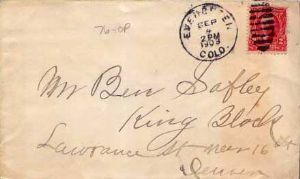 7640P
EVERGREEN
SEP
4
2 PM
1903
COLO.
Mr Ben Safley
King Block
Lawrance St near 16 St
Denver